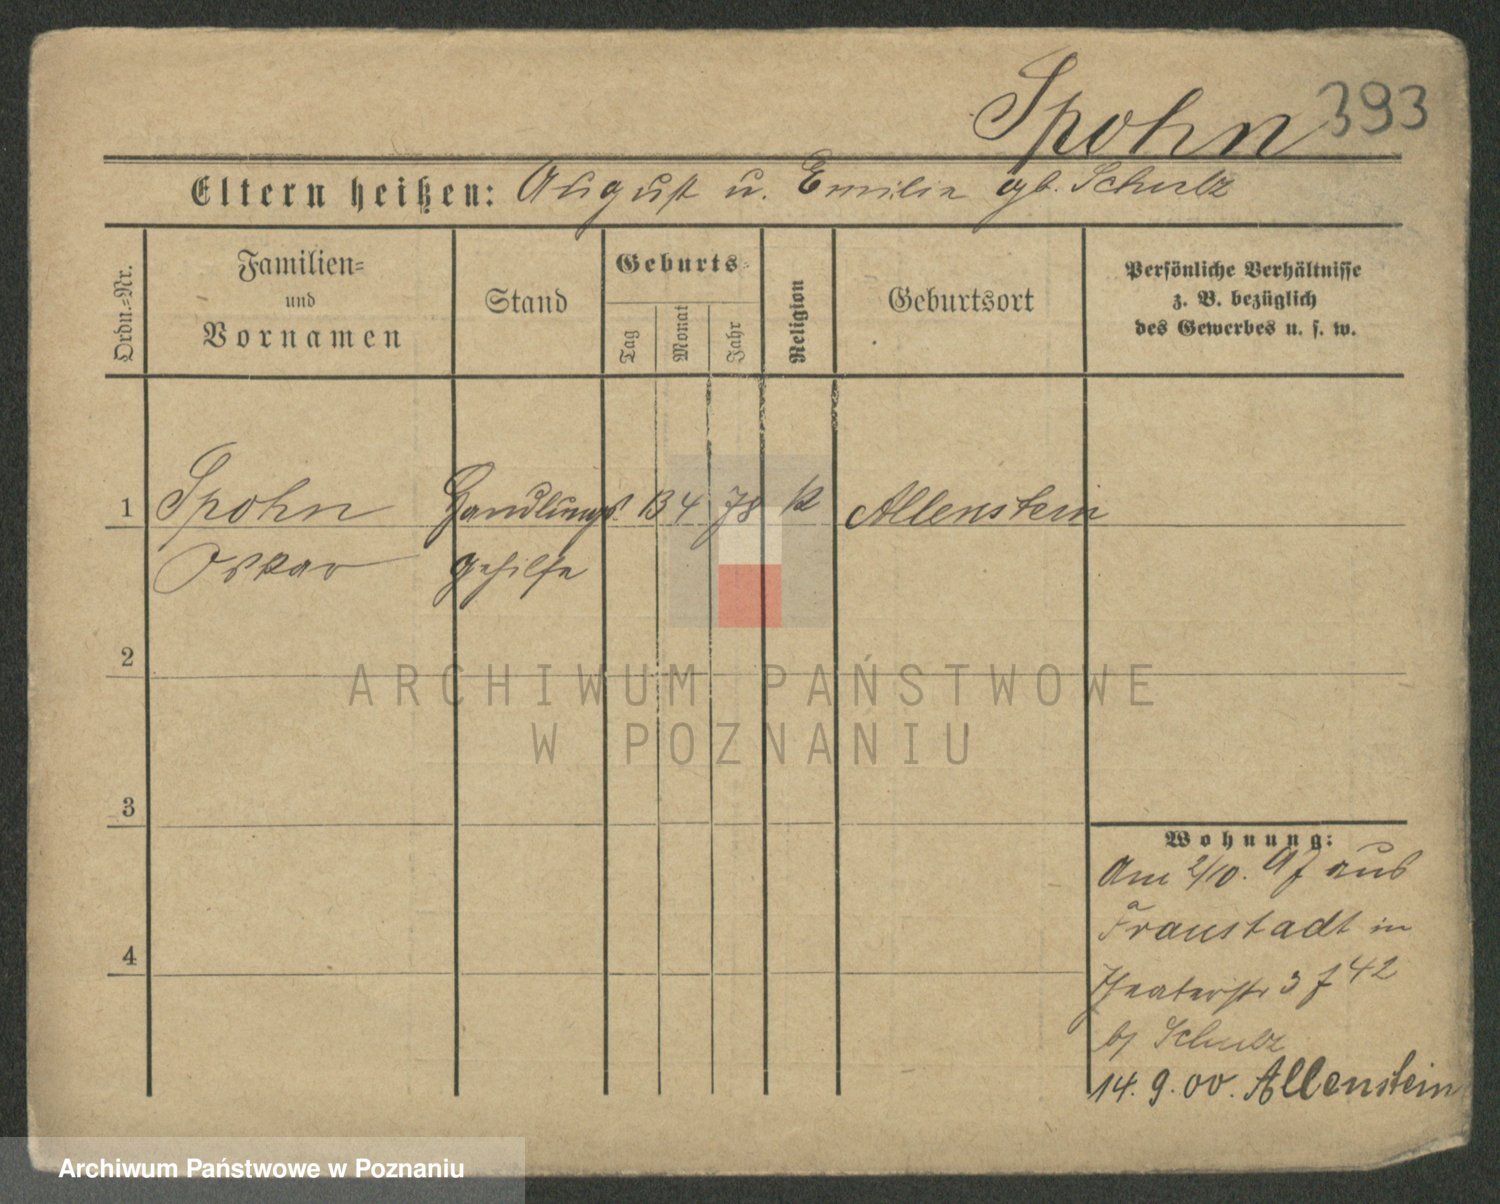 Spohn 393
Eltern heißen: August u. Emilie gb. Schulz
Ordn.=Nr.
Familien=
und
Vornamen
Stand
Geburts=
Tag
Monat
Jahr
Religion
Geburtsort
Persönliche Verhältnisse
z. B. bezüglich
des Gewerbes u. s. w.
1 Spohn Handlungs 13 4 78 k Allenstein
Oskar gehilfe
2
ARCHIWUM PAŃSTWOWE
W POZNANIU
3
Wohnung:
Am 2/10. 97 aus
Fraustadt in
4
Theaterstr 3 f 42
bj Schulz
14. 9. 00. Allenstein
Archiwum Państwowe w Poznaniu